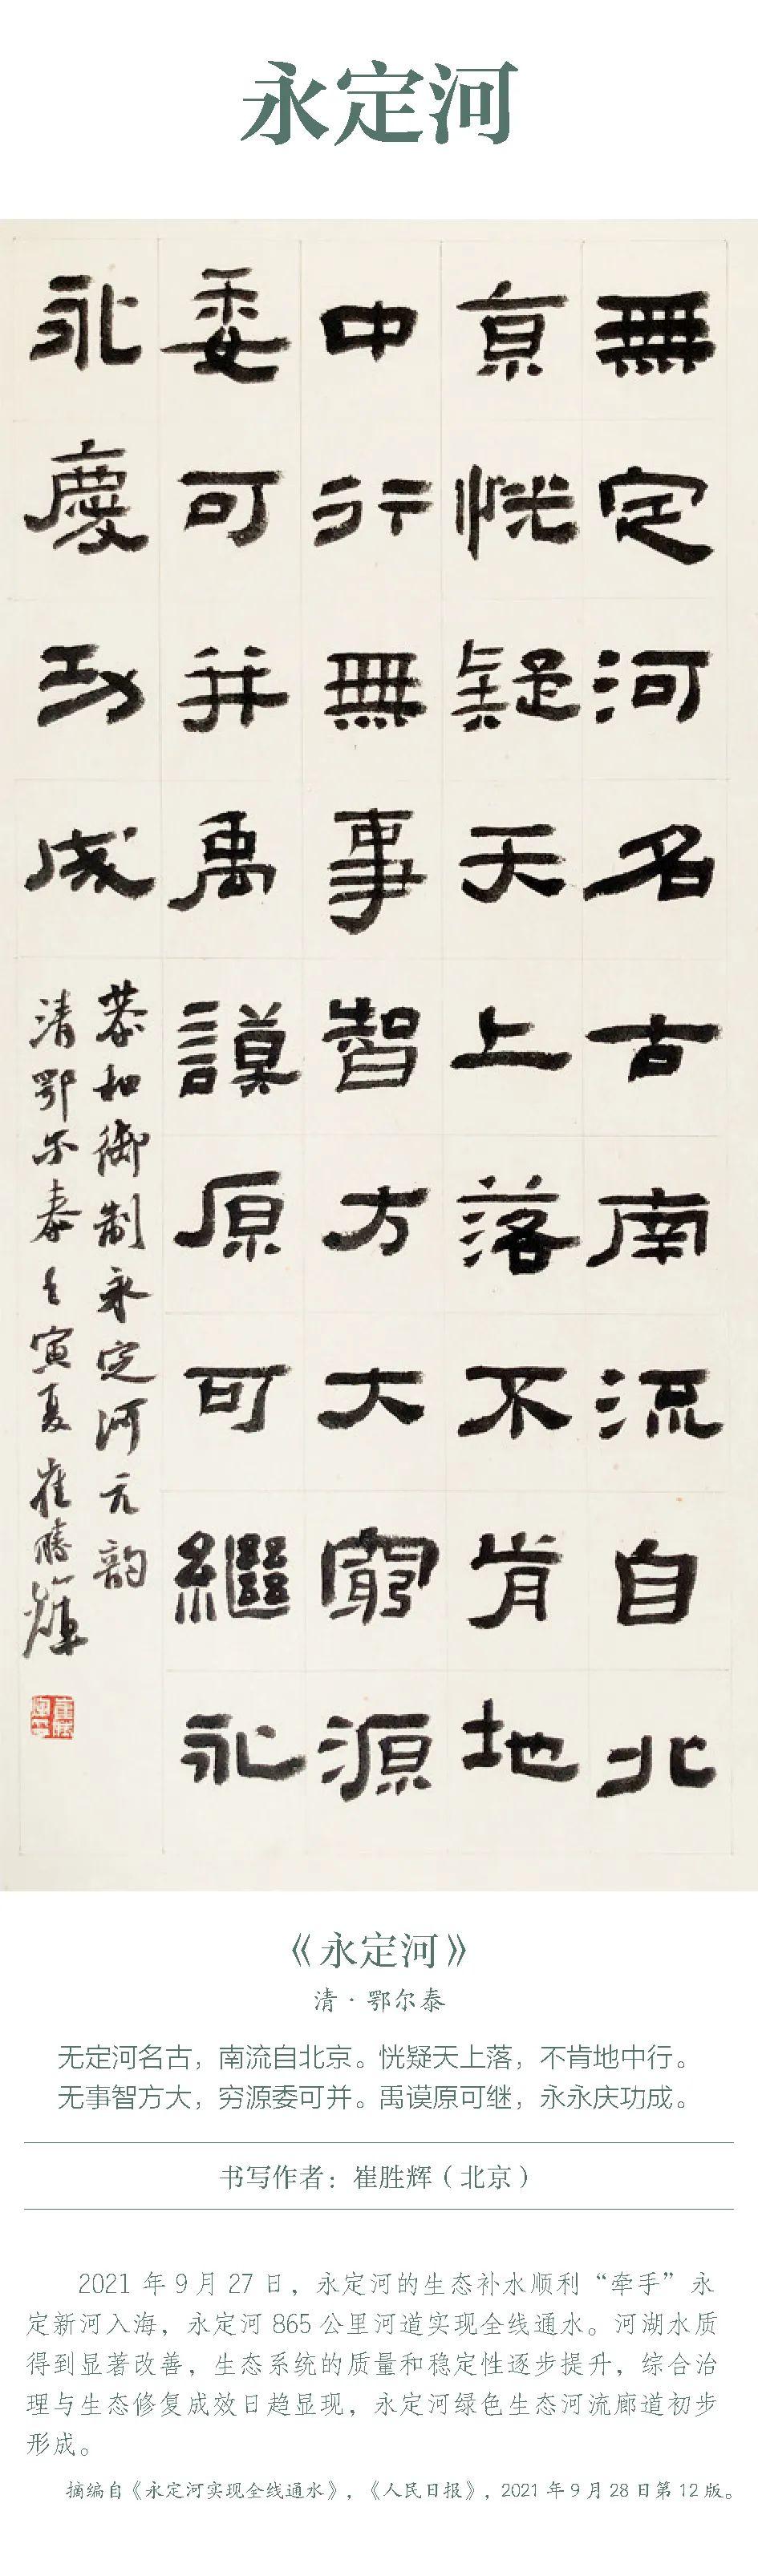 永定河
無定河名古南流自北
京恍疑天上落不肯地
中行無事智方大窮源
委可并禹謨原可繼永
永慶功成
恭和御制永定河元韵
清鄂尔泰壬寅夏崔勝輝
《永定河》
清·鄂尔泰
无定河名古，南流自北京。恍疑天上落，不肯地中行。
无事智方大，穷源委可并。禹谟原可继，永永庆功成。
书写作者：崔胜辉（北京）
2021 年 9 月 27 日，永定河的生态补水顺利“牵手”永
定新河入海，永定河 865 公里河道实现全线通水。河湖水质
得到显著改善，生态系统的质量和稳定性逐步提升，综合治
理与生态修复成效日趋显现，永定河绿色生态河流廊道初步
形成。
摘编自《永定河实现全线通水》，《人民日报》，2021 年 9 月 28 日第 12 版。